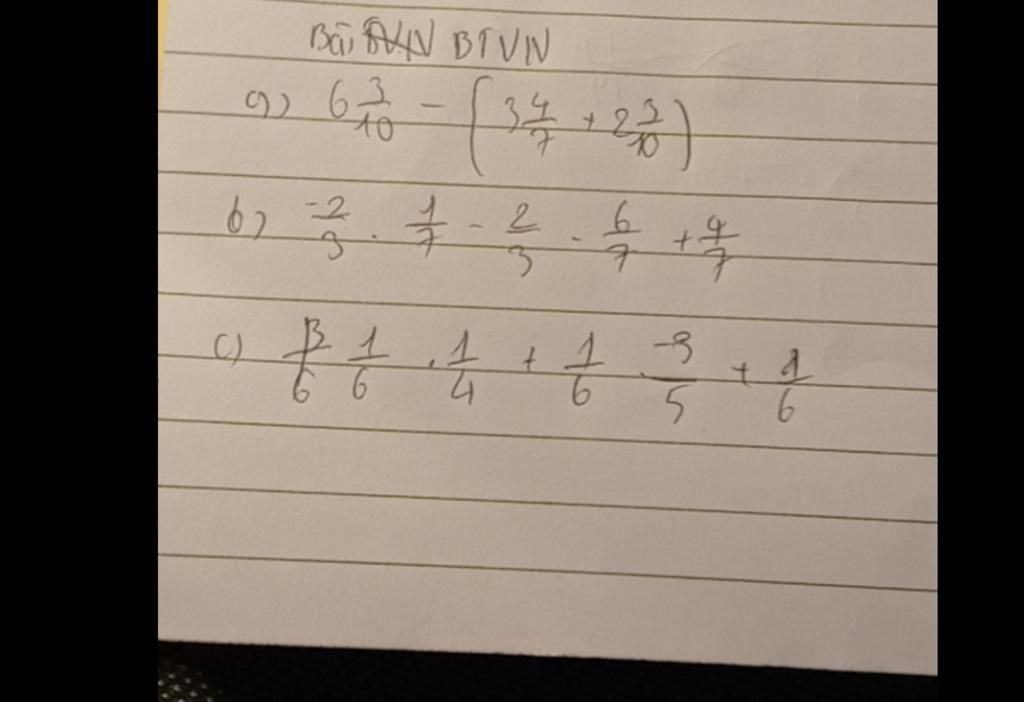 Bài BTVN
a) 6 3/10 - (3 4/7 + 2 3/10)
b) -2/3 . 1/7 - 2/3 . 6/7 + 4/7
c) 1/6 . 1/4 + 1/6 . -3/5 + 1/6